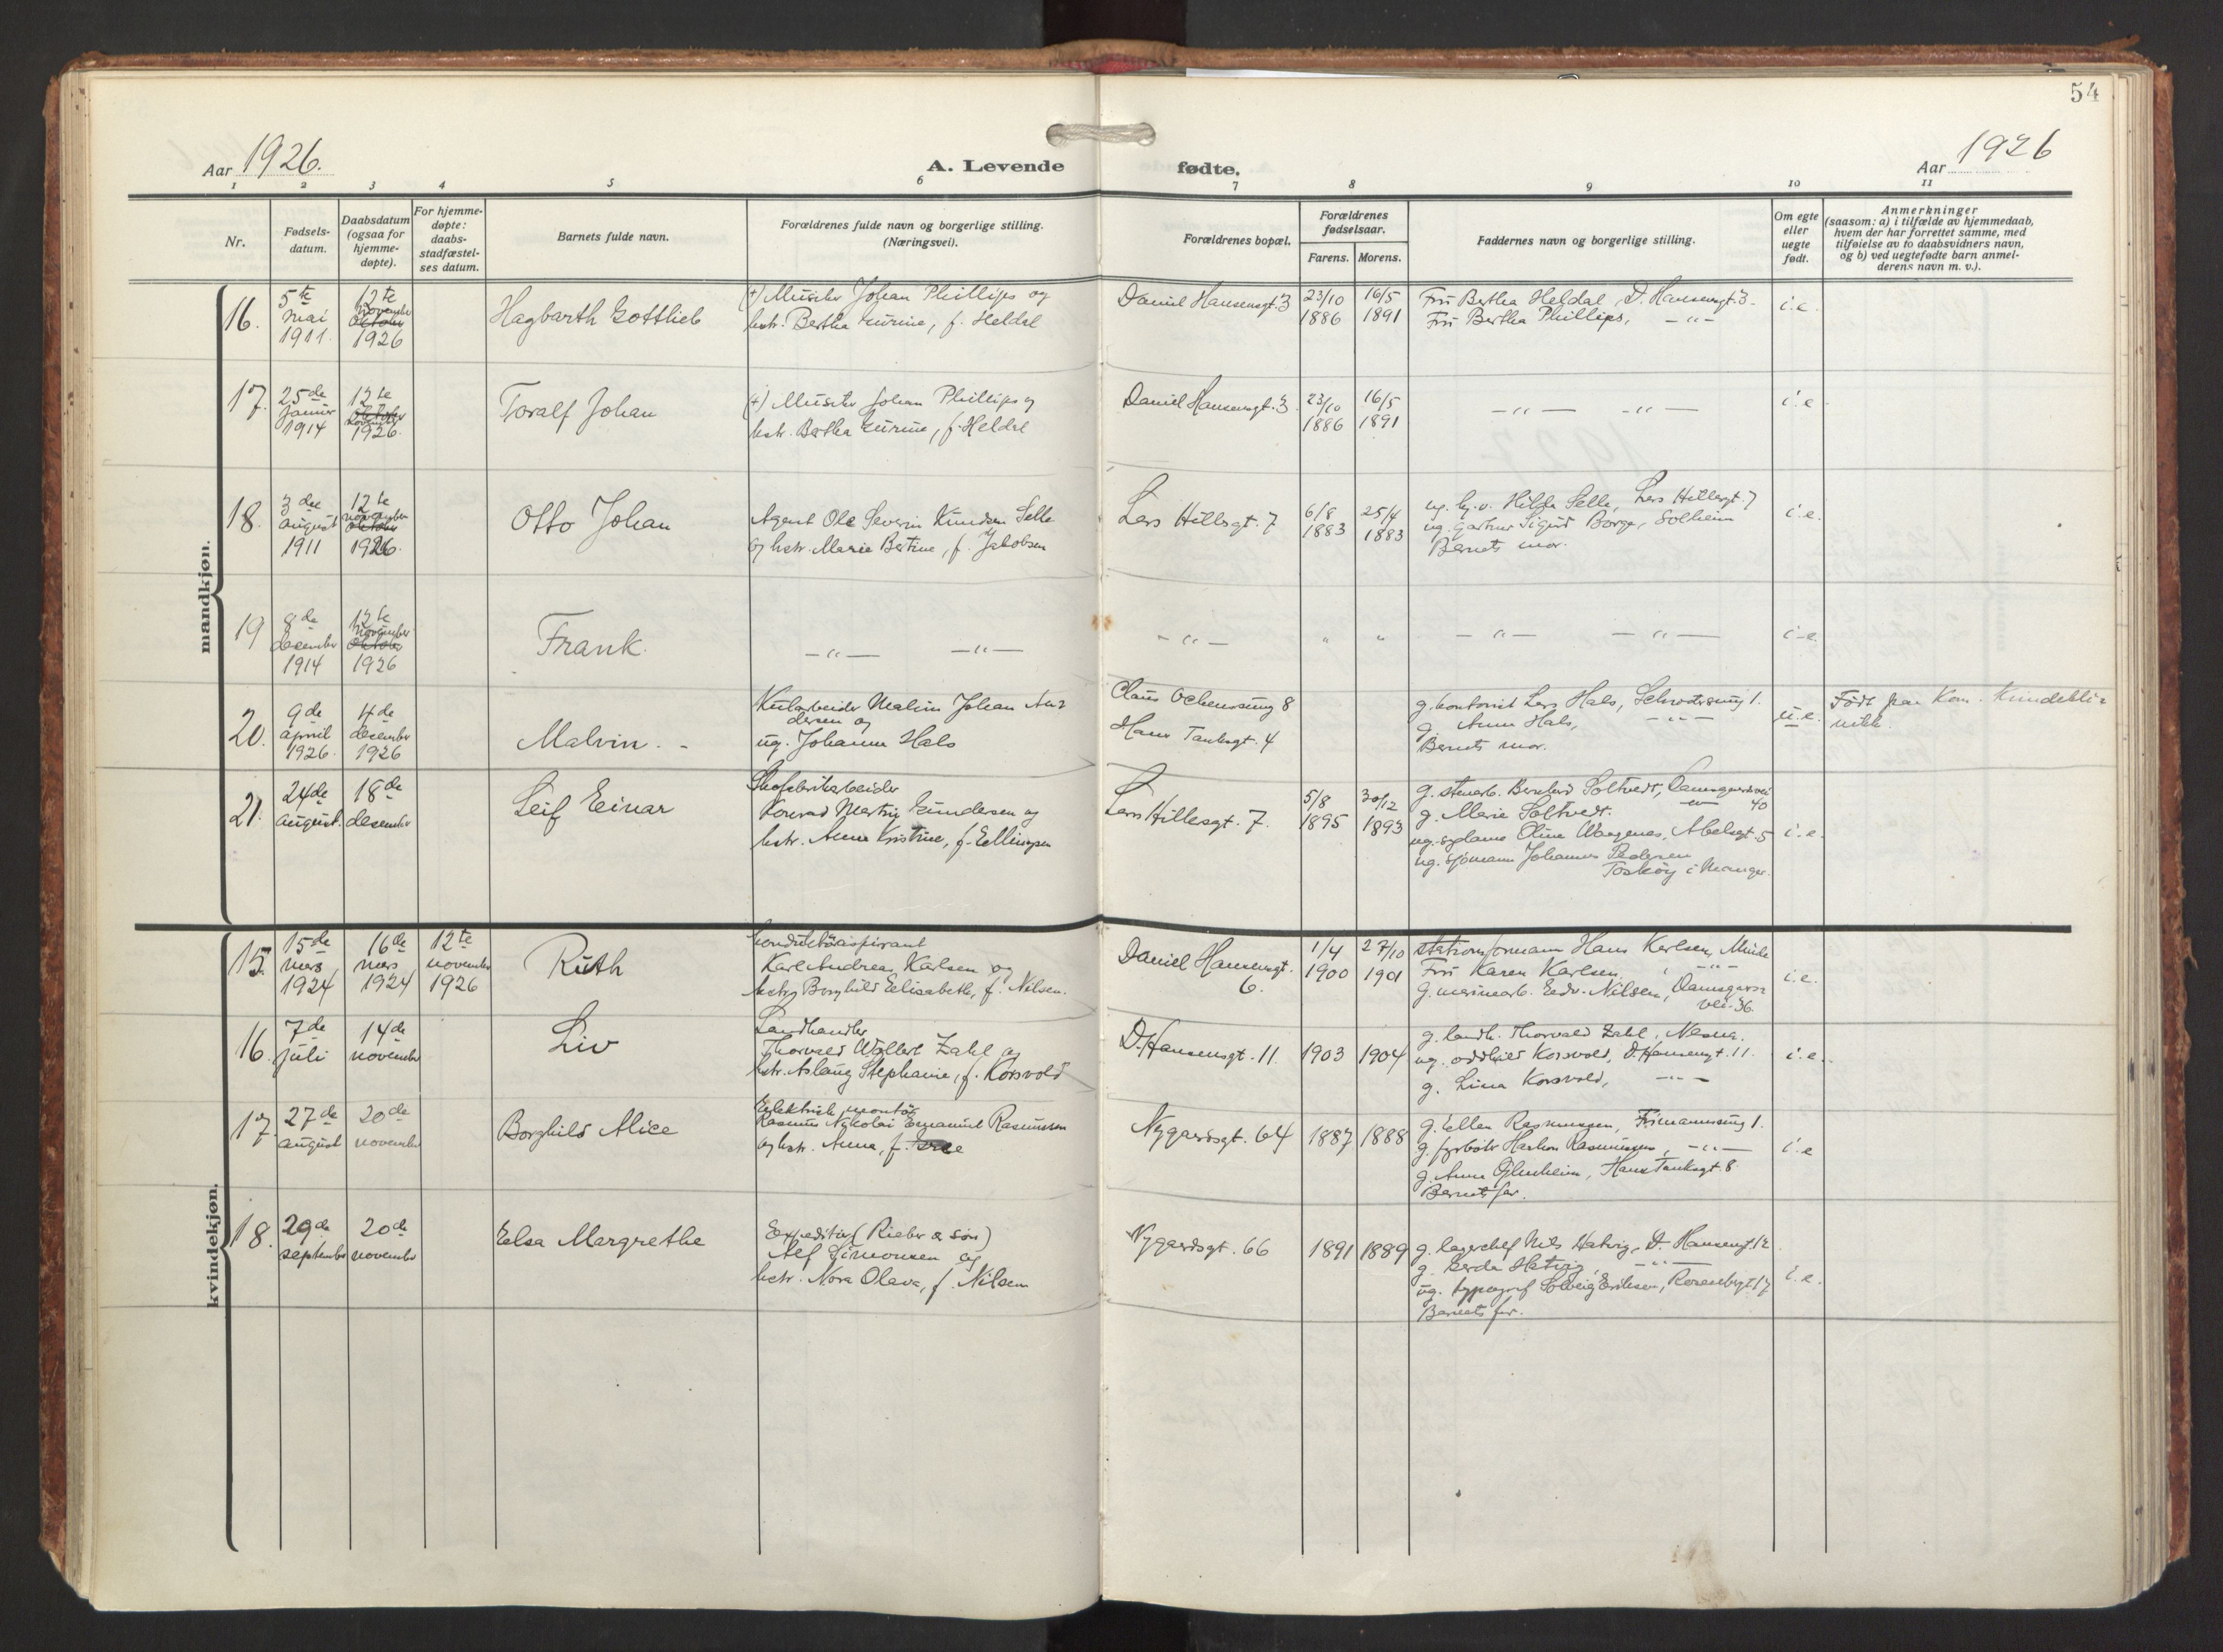 54
Aar 1926.
A. Levende
fødte.
Aar 1926
1 2 3 4 5 6 7 8 9 10 11
Nr.
Fødsels-
datum.
Daabsdatum
(ogsaa for
hjemme-
døpte).
For hjemme-
døpte:
daabs-
stadfæstel-
ses datum.
Barnets fulde navn.
Forældrenes fulde navn og borgerlige stilling.
(Næringsvei).
Forældrenes bopæl.
Forældrenes
fødselsaar.
Farens. Morens.
Faddernes navn og borgerlige stilling.
Om egte
eller
uegte
født.
Anmerkninger
(saasom: a) i tilfælde av hjemmedaab,
hvem der har forrettet samme, med
tilføielse av to daabsvidners navn,
og b) ved uegtefødte barn anmel-
derens navn m. v.).
mandkjøn.
16.
5te
mai
1911
12te
november
oktober
1926
Hagbarth Gottlieb
(+) Musiker Johan Phillips og
hstr. Bertha , f. Heldal
Daniel Hansensgt. 3
23/10
1886
16/5
1891
Fru Bertha Heldal, D. Hansensgt. 3
Fru Bertha Phillips, — " —
i.e.
17.
25de
januar
1914
12te
oktober
november
1926.
Toralf Johan
(+) Musiker Johan Phillips og
hstr. Bertha , f. Heldal
Daniel Hansensgt. 3
23/10
1886
16/5
1891
— " — — " —
i.e.
18.
3die
august
1911
12te
november
oktober
1926.
Otto Johan
Agent Ole Severin Knudsen Selle
og hstr. Marie Bertine, f. Jakobsen
Lars Hillesgt. 7
6/8
1883
25/4
1883
ug. Hilda Selle, Lars Hillesgt. 7
ug. gartner Sigurd Borge, Solheim
Barnets mor.
i.e.
19
8de
desember
1914
12te
november
oktober
1926
Frank.
— " — — " —
— " — " "
— " — — " —
i.e.
20.
9de
april
1926.
4de
desember
1926
Malvin.
Kularbeider Malvin Johan An-
dersen og
ug. Johanna Hals
Claus Ockenssmug 8
Hans Tanksgt. 4
g. kontorist Lars Hals, Schrødersmug 1.
g. Anna Hals, — " —
Barnets mor.
u.e.
Født paa Kom. Kvindekli-
nikk.
21.
24de
august.
18de
desember
Leif Einar
Skofabrikarbeider
Konrad Martin Gundersen og
hstr. Anna Kristine, f. Ellingsen
Lars Hillesgt. 7.
5/8
1895
30/12
1893
g. stenarb. Bernhard Soltvedt, Damsgaardsvei
40
g. Marie Soltvedt.
ug. sydame Olina Waagenes, Abelsgt. 5
ug. sjømann Johannes Pedersen
Toskøy i Manger.
i.e.
kvindekjøn.
15.
15de
mars
1924
16de
mars
1924
12te
november
1926
Ruth
Konduktøraspirant
Karl Andreas Karlsen og
hstr. Borghild Elisabeth, f. Nilsen.
Daniel Hansensgt.
6.
1/4
1900
27/10
1901
stationsformann Hans Karlsen, Minde
Fru Karen Karlsen, — " —
g. marinearb. Edv. Nilsen, Damsgaards
vei 36.
i.e.
16.
7de
juli
14de
november
Liv
Landhandler
Thorvald Wollert Zahl og
hstr. Aslaug Stephanie, f. Korsvold
D. Hansensgt. 11.
1903
1904
g. landh. Thorvald Zahl, Nesna.
ug. Oddhild Korsvold, D. Hansensgt. 11.
g. Lina Korsvold, — " —
i.e.
17.
27de
august
20de
november
Borghild Alice
Elektrisk montør
Rasmus Nikolai Emanuel Rasmussen
og hstr. Anna, f.
Nygaardsgt. 64
1887
1888
g. Ellen Rasmussen, Frimannsmug 1.
g. fyrbøter Rasmussen, — " —
g. Anna , Hans Tanksgt. 8.
Barnets far.
i.e
18.
29de
september
20de
november
Elsa Margrethe
Expeditør (Rieber & søn)
Alf Simonsen og
hstr. Nora Olava, f. Nilsen
Nygaardsgt. 66
1891
1889
g. lagerchef Nils Hatvig, D. Hansensgt. 12
g. Gerda Hatvig, — " —
ug. typograf Solveig Eriksen, Rosenbergt. 17
Barnets far.
i.e.